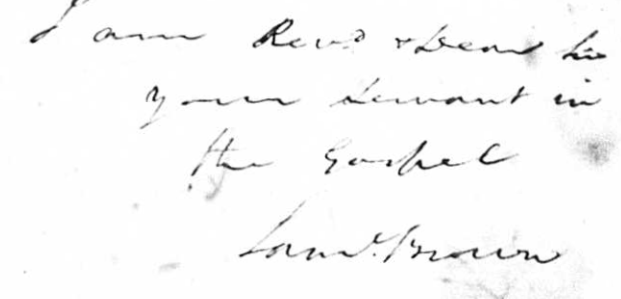 I am Revd & Dear Sir
your servant in
the Gospel
Saml. Brown